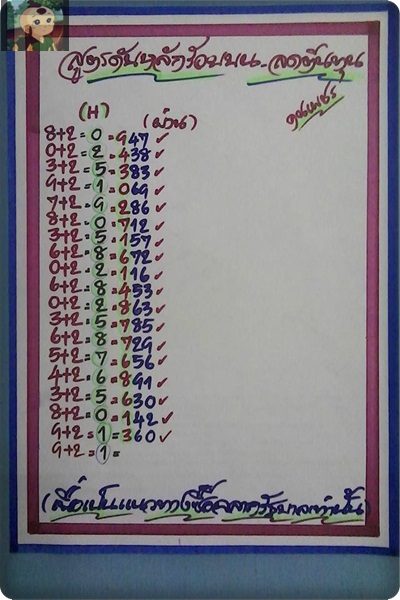 สูตรดับหลักร้อยบน-ลดต้นทุน
(H)
(ผ่าน)
8+2=0=947✓
0+2=2=438✓
3+2=5=383✓
9+2=1=069✓
7+2=9=286✓
8+2=0=712✓
3+2=5=157✓
6+2=8=672✓
0+2=2=116✓
6+2=8=453✓
0+2=2=863✓
3+2=5=785✓
6+2=8=729✓
5+2=7=656✓
4+2=6=891✓
3+2=5=630✓
8+2=0=142✓
9+2=1=360✓
9+2=1=
(เพื่อเป็นแนวทางซื้อสลากรัฐบาลเท่านั้น)